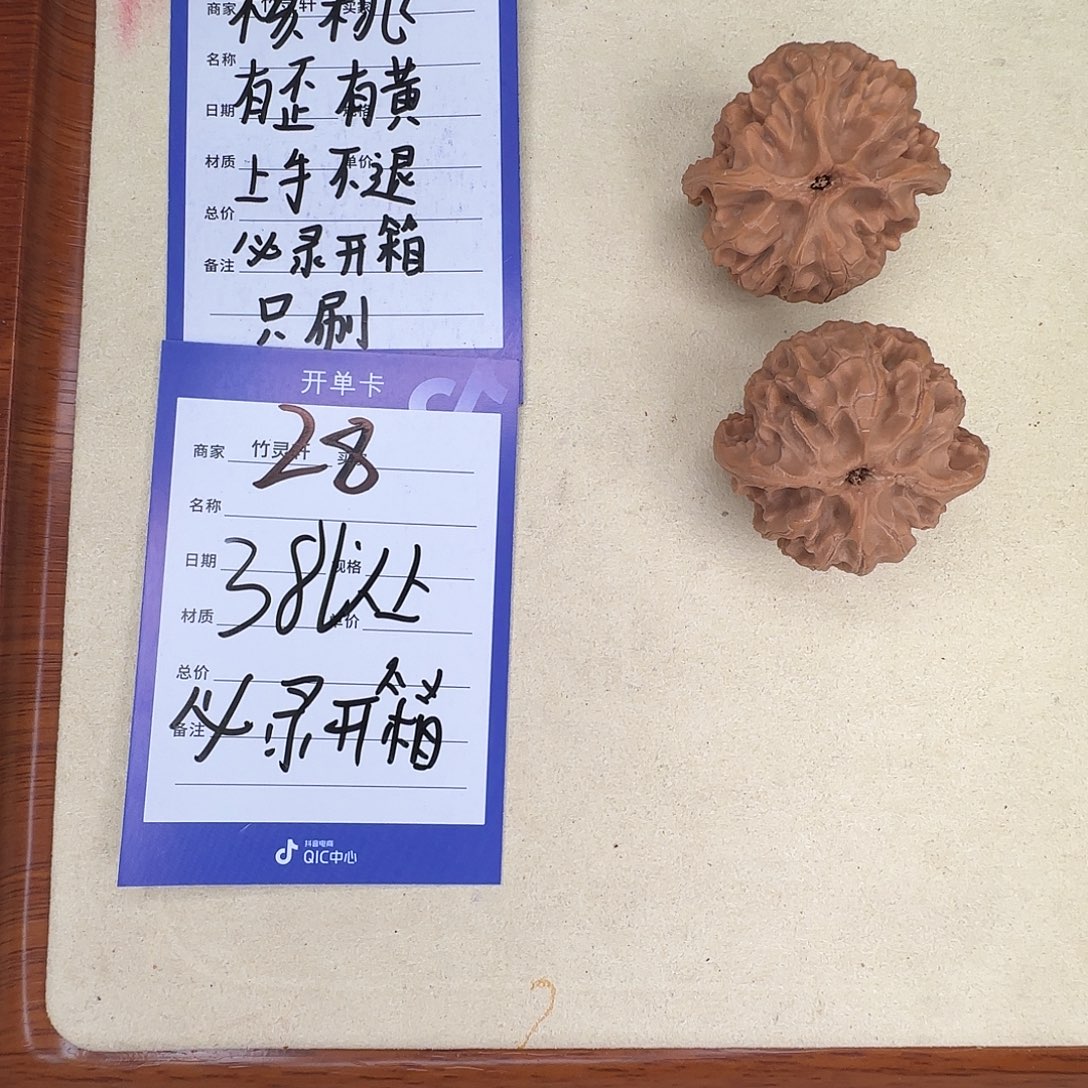 商家 竹灵轩 买家
核桃
名称
有歪 有黄
日期 规格
材质 单价
上手不退
总价
必录开箱
备注
只刷
开单卡
商家 竹灵轩 买家
28
名称
日期 规格
38
材质 单价
总价
必录开箱
备注
抖音电商
QIC中心